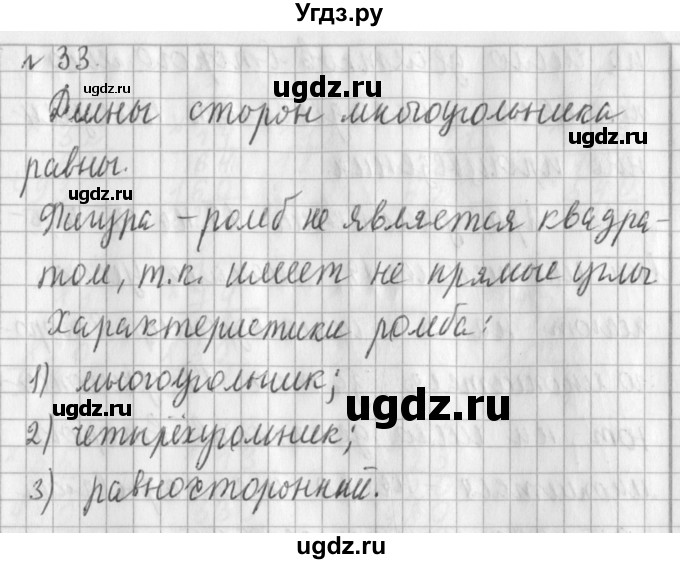 Угдз.ру
№ 33.
ugdz.ru
Длины сторон многоугольника
ugdz.ru
равны.
ugdz.ru
Фигура - ромб не является квадра-
том, т.к. имеет не прямые углы
ugdz.ru
Характеристики ромба:
1) многоугольник;
ugdz.ru
ugdz.ru
2) четырёхугольник;
3) равносторонний.
ugdz.ru
ugdz.ru